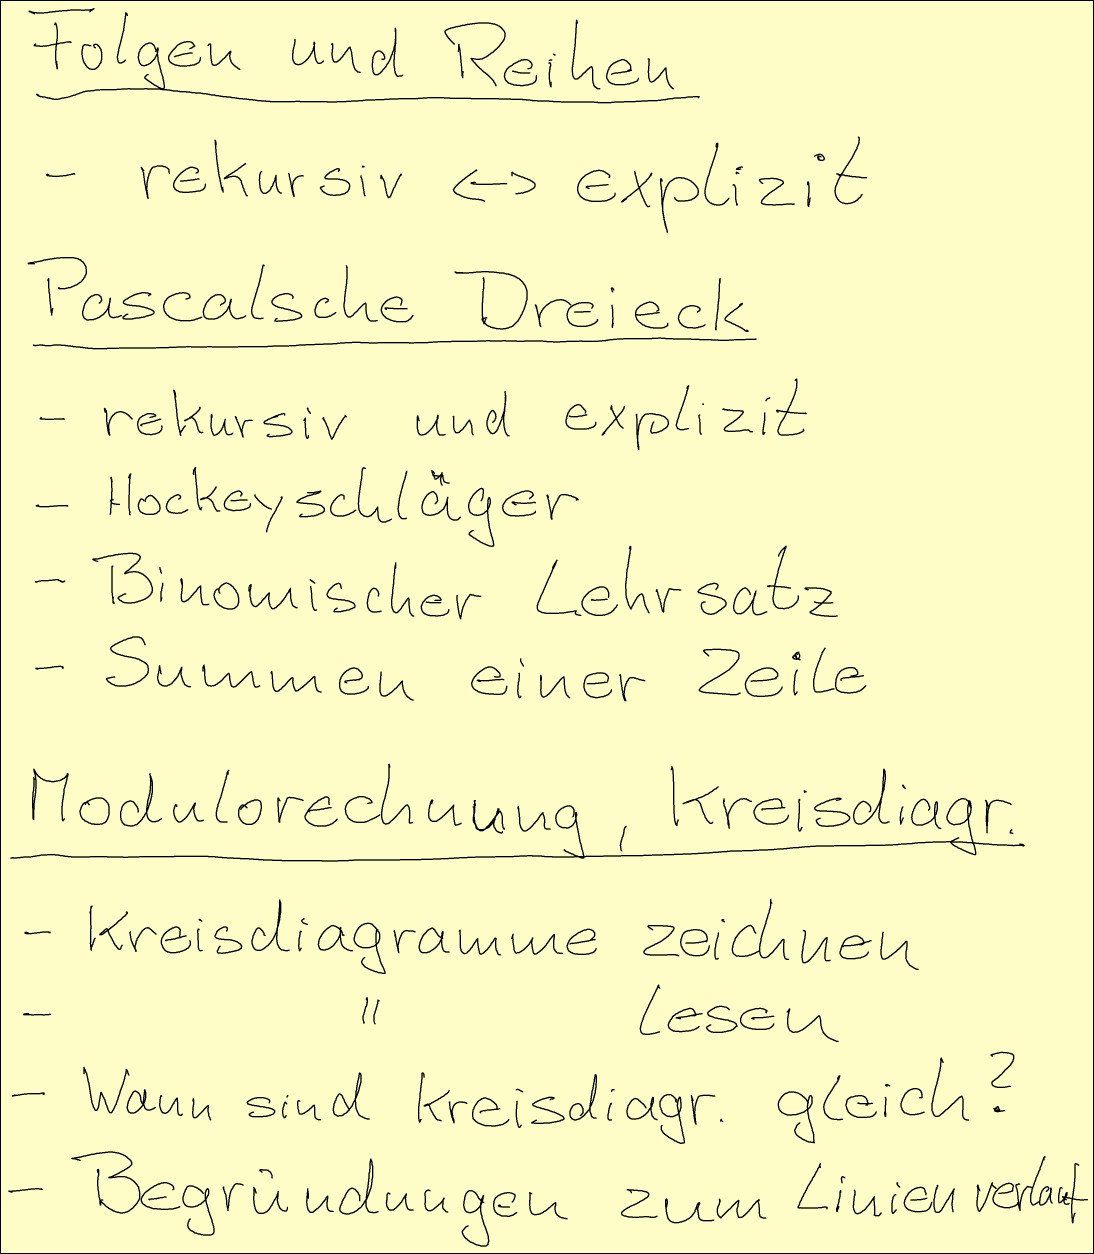 Folgen und Reihen
- rekursiv <-> explizit
Pascalsche Dreieck
- rekursiv und explizit
- Hockeyschläger
- Binomischer Lehrsatz
- Summen einer Zeile
Modulorechnung, Kreisdiagr.
- Kreisdiagramme zeichnen
- " lesen
- Wann sind Kreisdiagr. gleich?
- Begründungen zum Linienverlauf